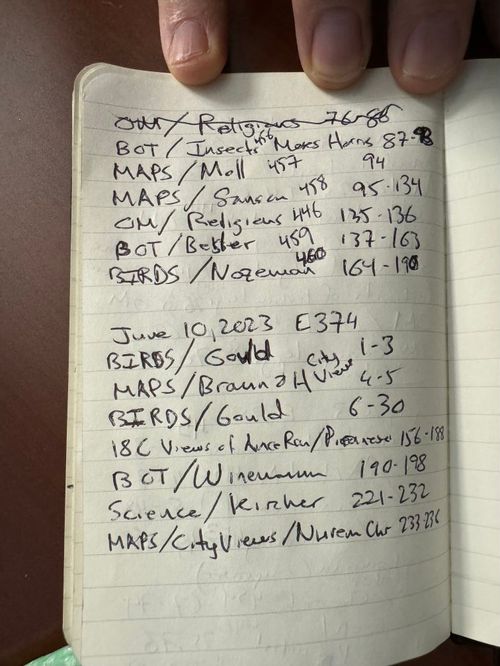 OM/ Religious 76-86
BOT/Insects 456 Moses Harris 87-93
MAPS/Moll 457 94
MAPS/Sanson 458 95-134
OM/Religious 446 135-136
BOT/Besler 459 137-163
BIRDS/Nozeman 460 164-190
June 10, 2023 E374
BIRDS/Gould 1-3
MAPS/Braun & H City Views 4-5
BIRDS/Gould 6-30
18C Views of Anc Rom/Piranesi 156-188
BOT/Winemann 190-198
Science/Kircher 221-232
MAPS/City Views/Nurem Chr 233-236